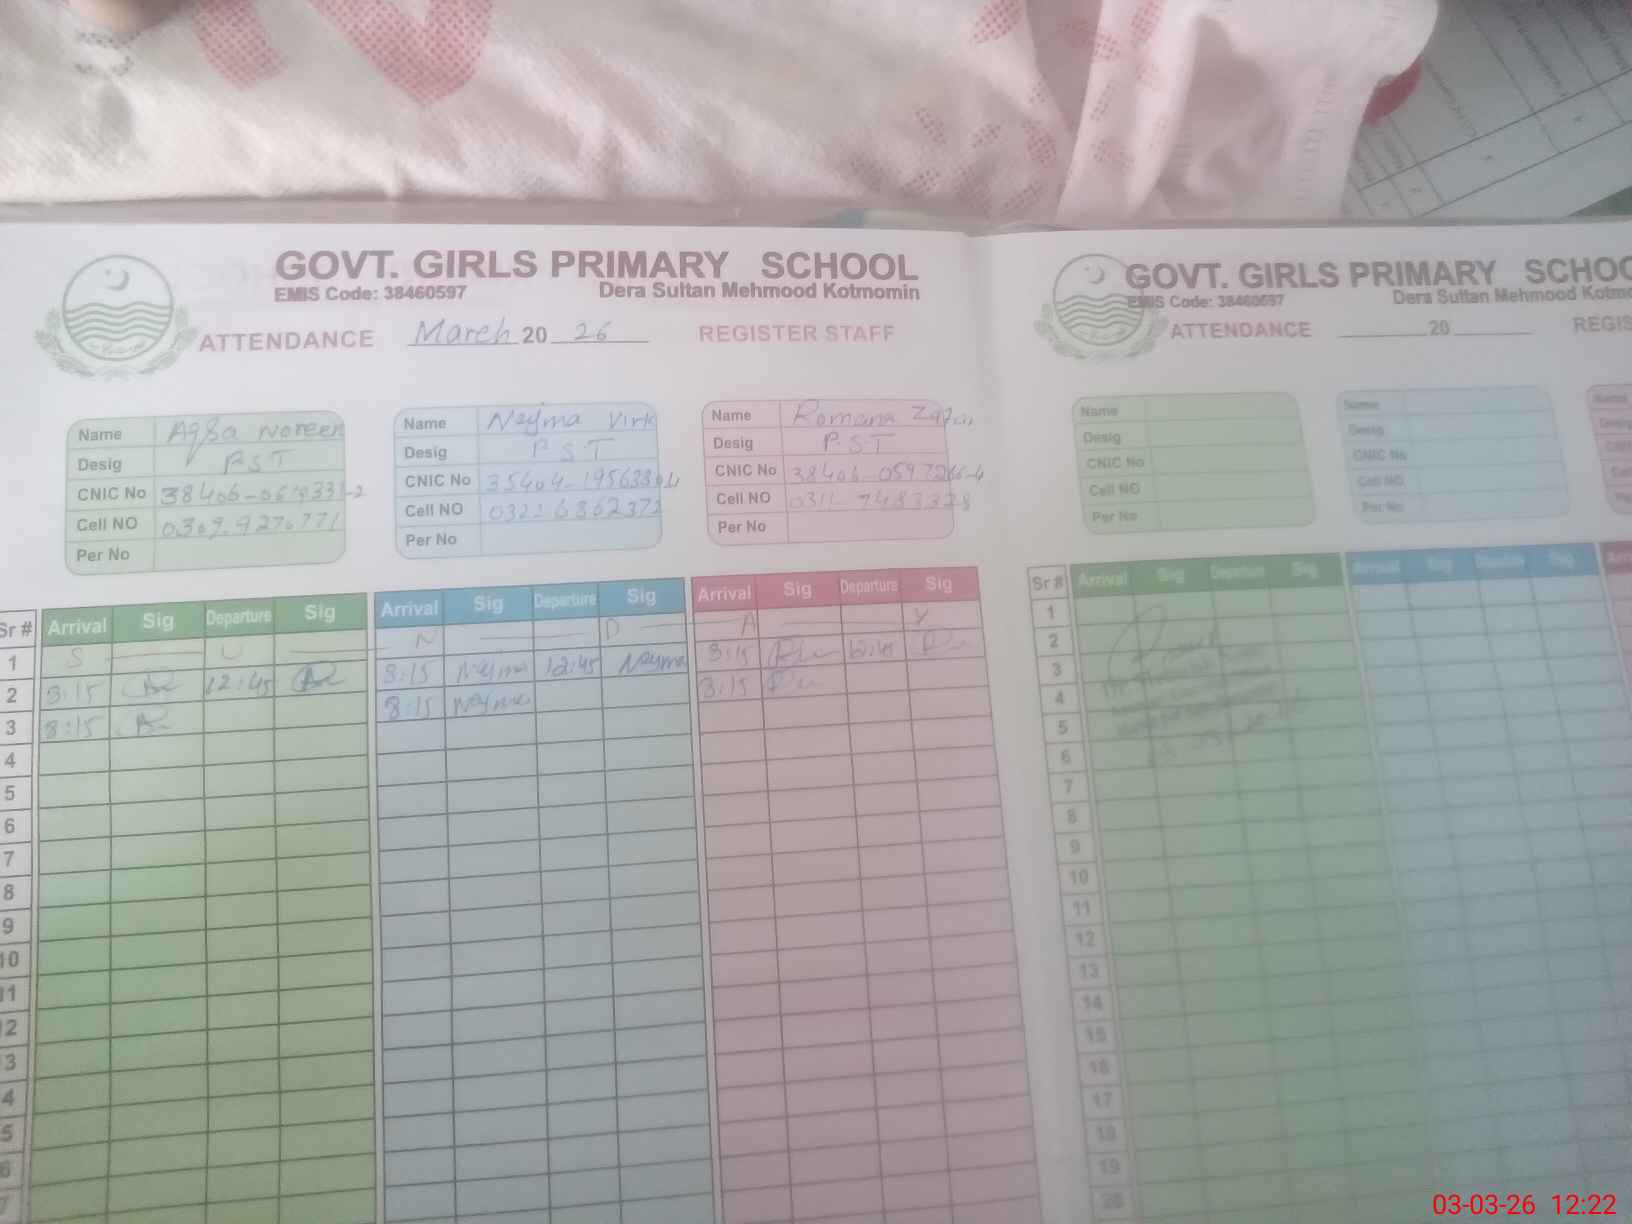 GOVT. GIRLS PRIMARY SCHOOL
EMIS Code: 38460597 Dera Sultan Mehmood Kotmomin
ATTENDANCE March 20 26 REGISTER STAFF
Name Aqsa Noreen
Desig PST
CNIC No
Cell NO 0309-9270771
Per No
Name Najma Virk
Desig PST
CNIC No
Cell NO 0321 6862372
Per No
Name Romana
Desig PST
CNIC No
Cell NO 0311-7483328
Per No
Sr # Arrival Sig Departure Sig Arrival Sig Departure Sig Arrival Sig Departure Sig
1 S U N D A Y
2 8:15 12:45 8:15 Najma 12:45 Najma 8:15 12:45
3 8:15 8:15 Najma 8:15
4
5
6
7
8
9
10
11
12
13
14
15
16
17
GOVT. GIRLS PRIMARY SCHOO
EMIS Code: 38460597 Dera Sultan Mehmood Kotmo
ATTENDANCE 20 REGIS
Name
Desig
CNIC No
Cell NO
Per No
Name
Desig
CNIC No
Cell NO
Per No
Sr # Arrival Sig Departure Sig Arrival Sig Departure Sig
1
2
3
4
5
6
7
8
9
10
11
12
13
14
15
16
17
18
19
20
03-03-26 12:22